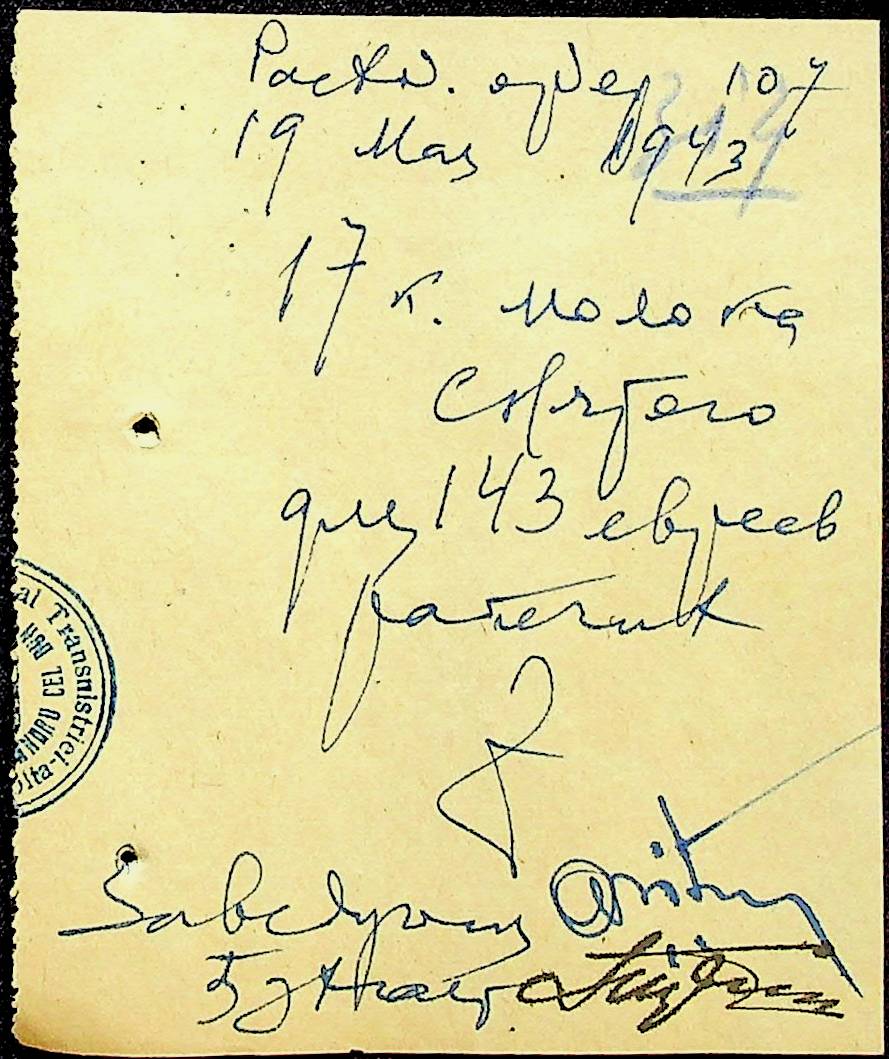 Расход. ордер 107
19 Мая 1943
17 к. молока
снятого
для 143 евреев
рабочих
Заведующий
Бухгалтер
al Transnistriei
ANDRU CEL BUN